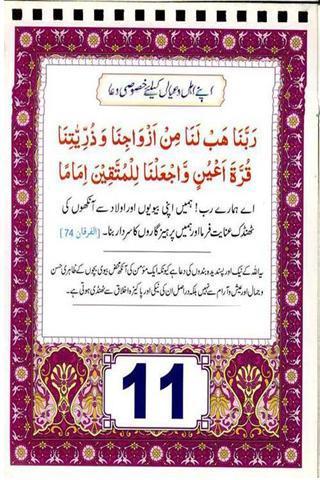 اپنے اہل و عیال کیلئے خصوصی دعا
رَبَّنَا هَبْ لَنَا مِنْ اَزْوَاجِنَا وَذُرِّيّٰتِنَا
قُرَّةَ اَعْيُنٍ وَّاجْعَلْنَا لِلْمُتَّقِيْنَ اِمَامًا
اے ہمارے رب! ہمیں اپنی بیویوں اور اولاد سے آنکھوں کی
ٹھنڈک عنایت فرما اور ہمیں پرہیزگاروں کا سردار بنا۔ [الفرقان 74]
یہ اللہ کے نیک اور پسندیدہ بندوں کی دعا ہے کیونکہ ایک مؤمن کی آنکھ محض بیوی بچوں کے ظاہری حسن
و جمال اور عیش و آرام سے نہیں بلکہ دراصل ان کی نیکی اور پاکیزہ اخلاق سے ٹھنڈی ہوتی ہے۔
11